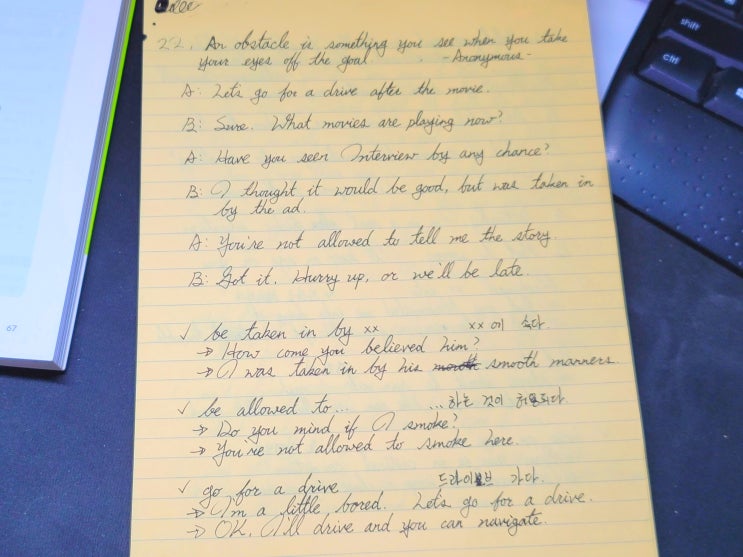 22. An obstacle is something you see when you take
your eyes off the goal. -Anonymous-
A: Let's go for a drive after the movie.
B: Sure. What movies are playing now?
A: Have you seen Interview by any chance?
B: I thought it would be good, but was taken in
by the ad.
A: You're not allowed to tell me the story.
B: Got it. Hurry up, or we'll be late.
✓ be taken in by xx xx에 속다.
→ How come you believed him?
→ I was taken in by his smooth manners.
✓ be allowed to... ...하는 것이 허용되다.
→ Do you mind if I smoke?
→ You're not allowed to smoke here.
✓ go for a drive 드라이브 가다.
→ I'm a little bored. Let's go for a drive.
→ OK, I'll drive and you can navigate.
67
shift
ctrl